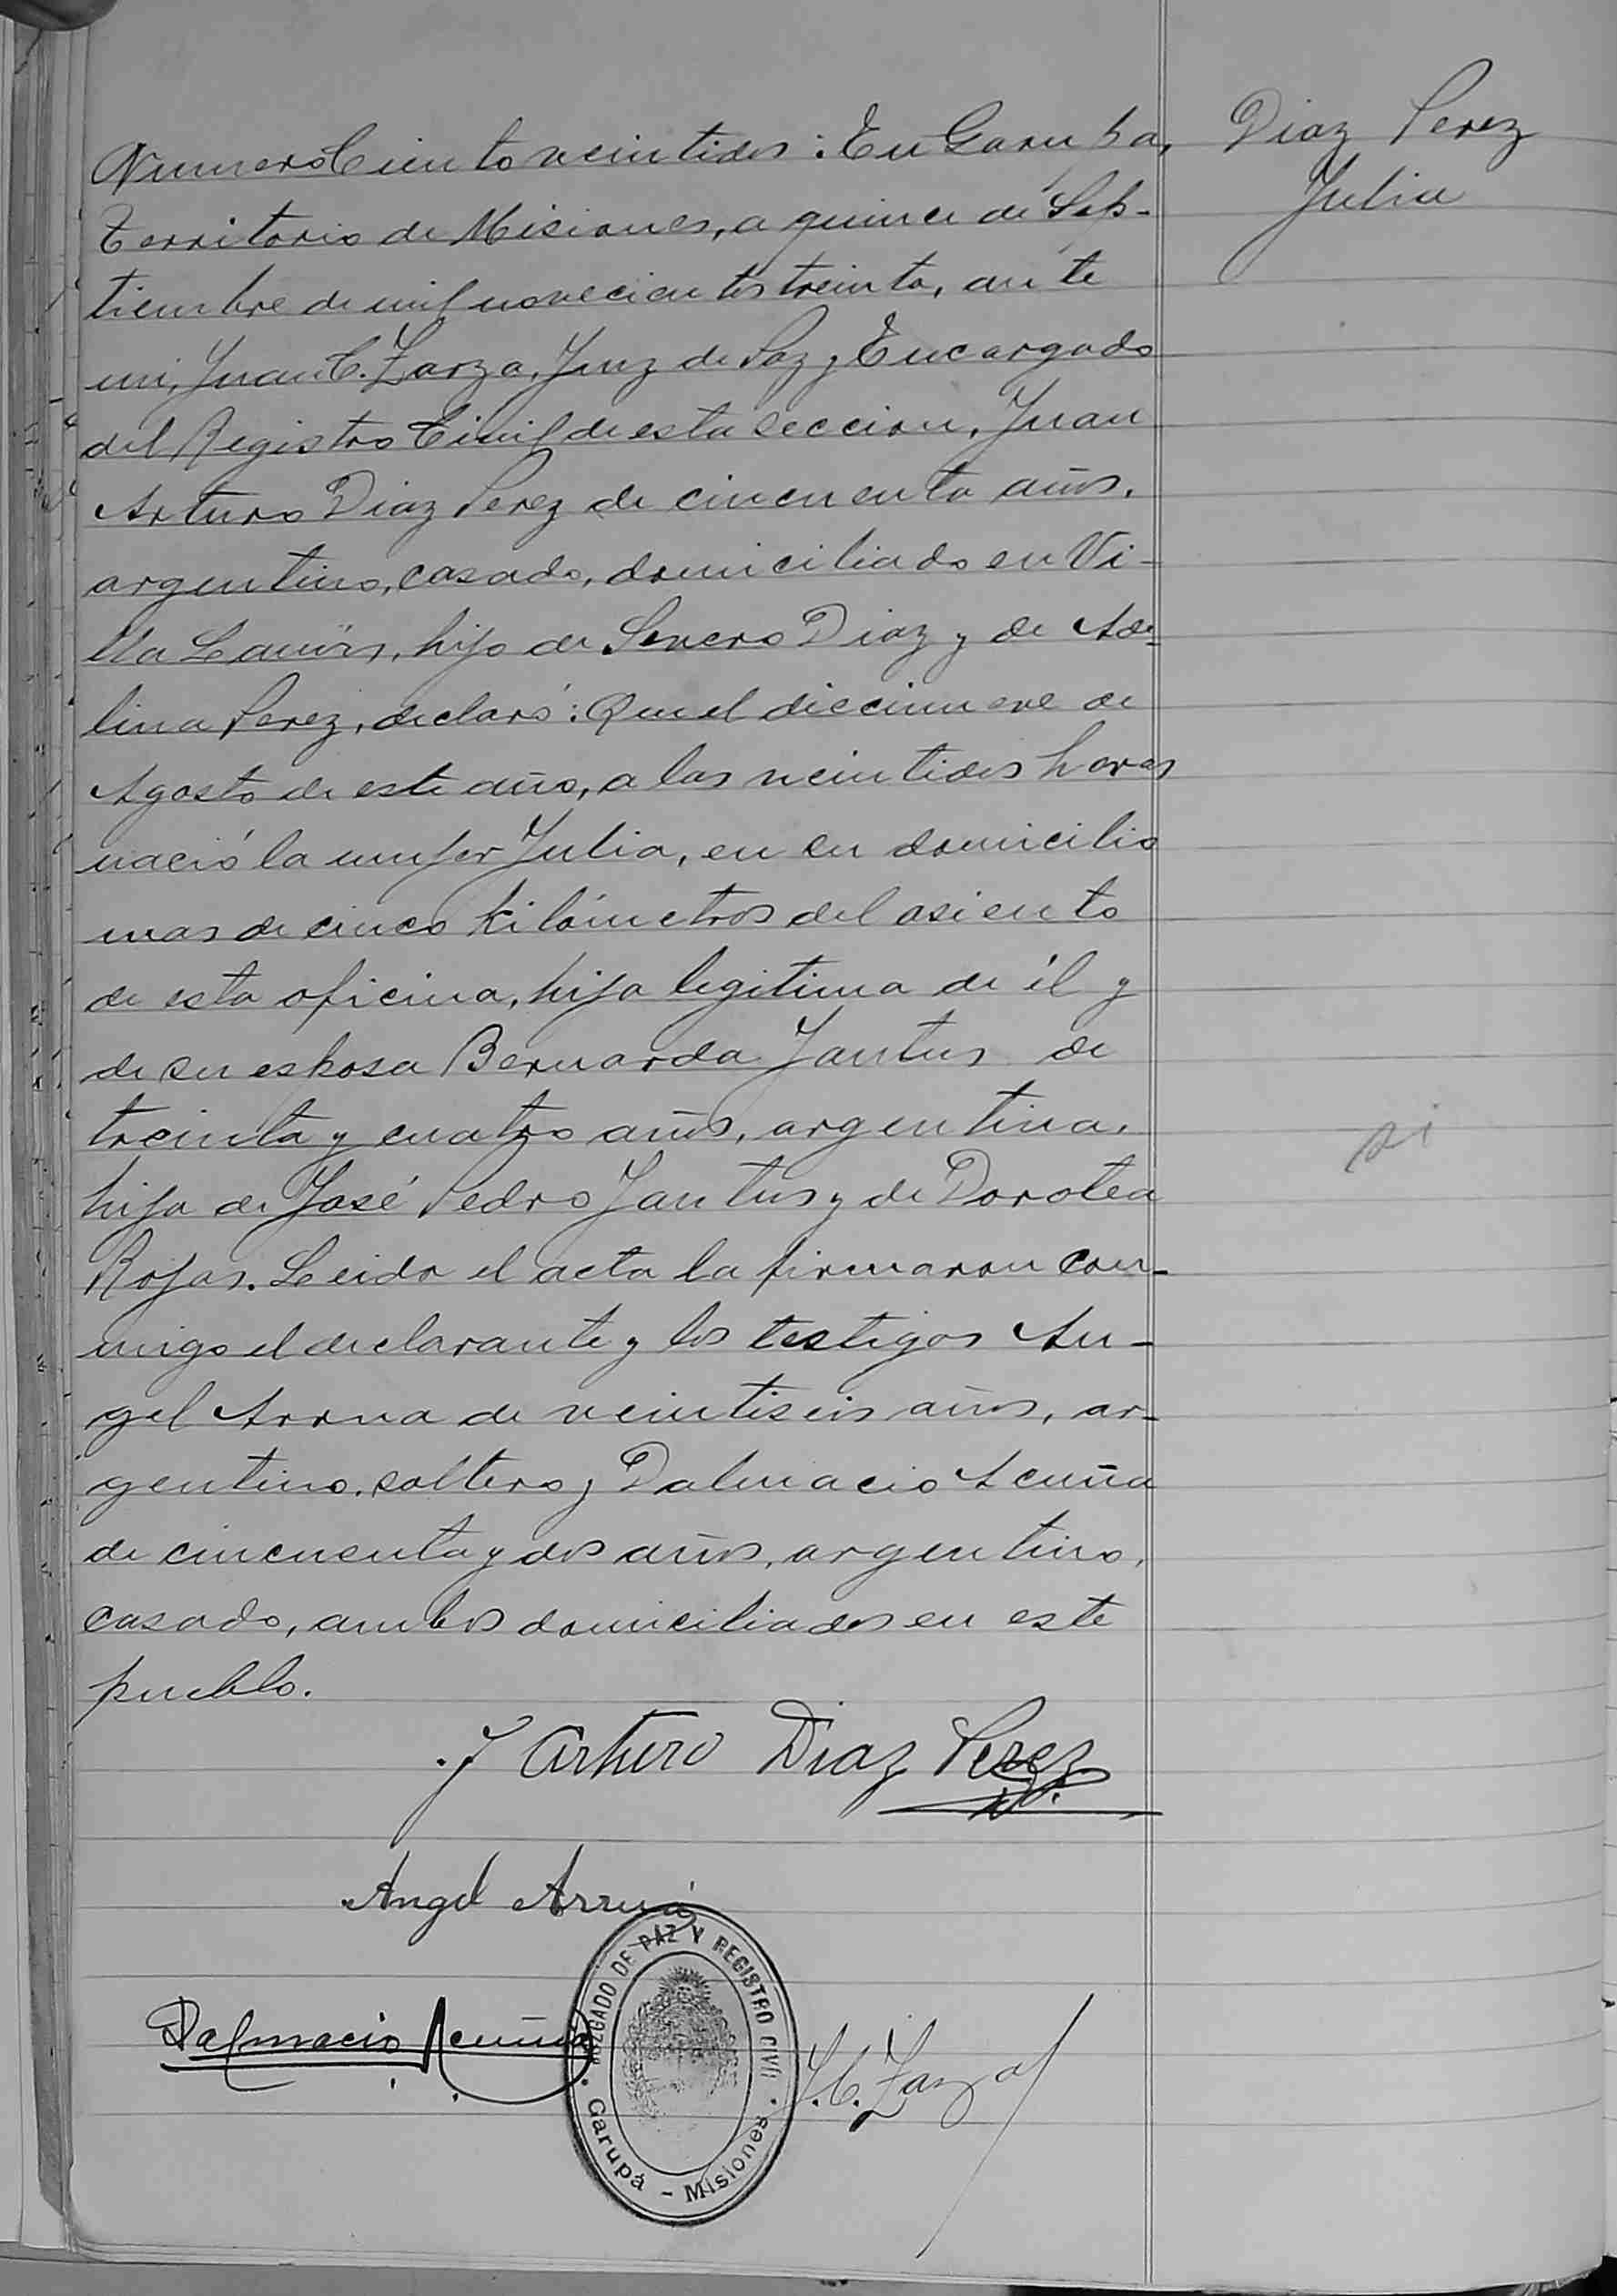 Numero Ciento veintidos: En Garupa,
Territorio de Misiones, a quince de Sep-
tiembre de mil novecientos treinta, ante
mi, Juan C. Zarza, Juez de Paz y Encargado
del Registro Civil de esta seccion, Juan
Arturo Diaz Perez de cincuenta años,
argentino, casado, domiciliado en Vi-
lla Lanús, hijo de Severo Diaz y de Ade-
lina Perez, declaró: Que el diecinueve de
Agosto de este año, a las veintidos horas
nació la mujer Julia, en su domicilio
mas de cinco kilómetros del asiento
de esta oficina, hija legitima de él y
de su esposa Bernarda Jantus de
treinta y cuatro años, argentina,
hija de José Pedro Jantus y de Dorotea
Rojas. Leida el acta la firmaron con-
migo el declarante y los testigos An-
gel Arrua de veintiseis años, ar-
gentino, soltero y Dalmacio Acuña
de cincuenta y dos años, argentino,
casado, ambos domiciliados en este
pueblo.
Diaz Perez
Julia
si
J Arturo Diaz Perez
Angel Arruá
Dalmacio Acuña
J. C. Zarza
JUZGADO DE PAZ Y REGISTRO CIVIL
Garupá - Misiones